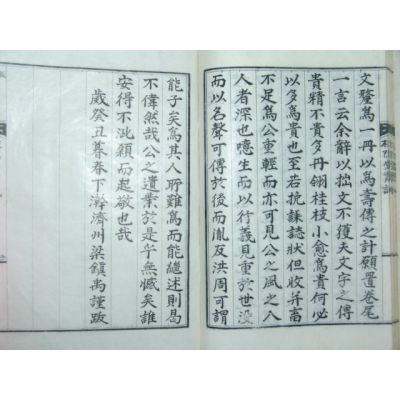 文鼇爲一冊以爲壽傳之計願置卷尾
一言云余辭以拙文不獲夫文字之傳
貴精不貴多丹翎桂枝小愈爲貴何必
以多爲貴也至若抗誄誌狀但收并畜
不足爲公重輕而亦可見公之風之入
人者深也噫生而以行義見重於世沒
而以名聲可傳於後而胤及洪周可謂
能子矣爲其人所難爲而能繼述則曷
不偉然哉公之遺業於是乎無憾矣誰
安得不泚顙而起敬也哉
歲癸丑暮春下澣濟州梁鎭禹謹跋